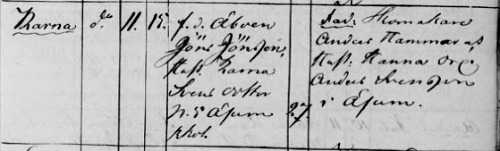 Karna do 11. 15. f. d. Åboen
Jöns Jönsson,
Hust. Karna
Svens dotter
N. 5 Äsum
27.
fad. Skomakare
Anders Hammar ...
Hust. Hanna ...
Anders Svensson
i Äsum.